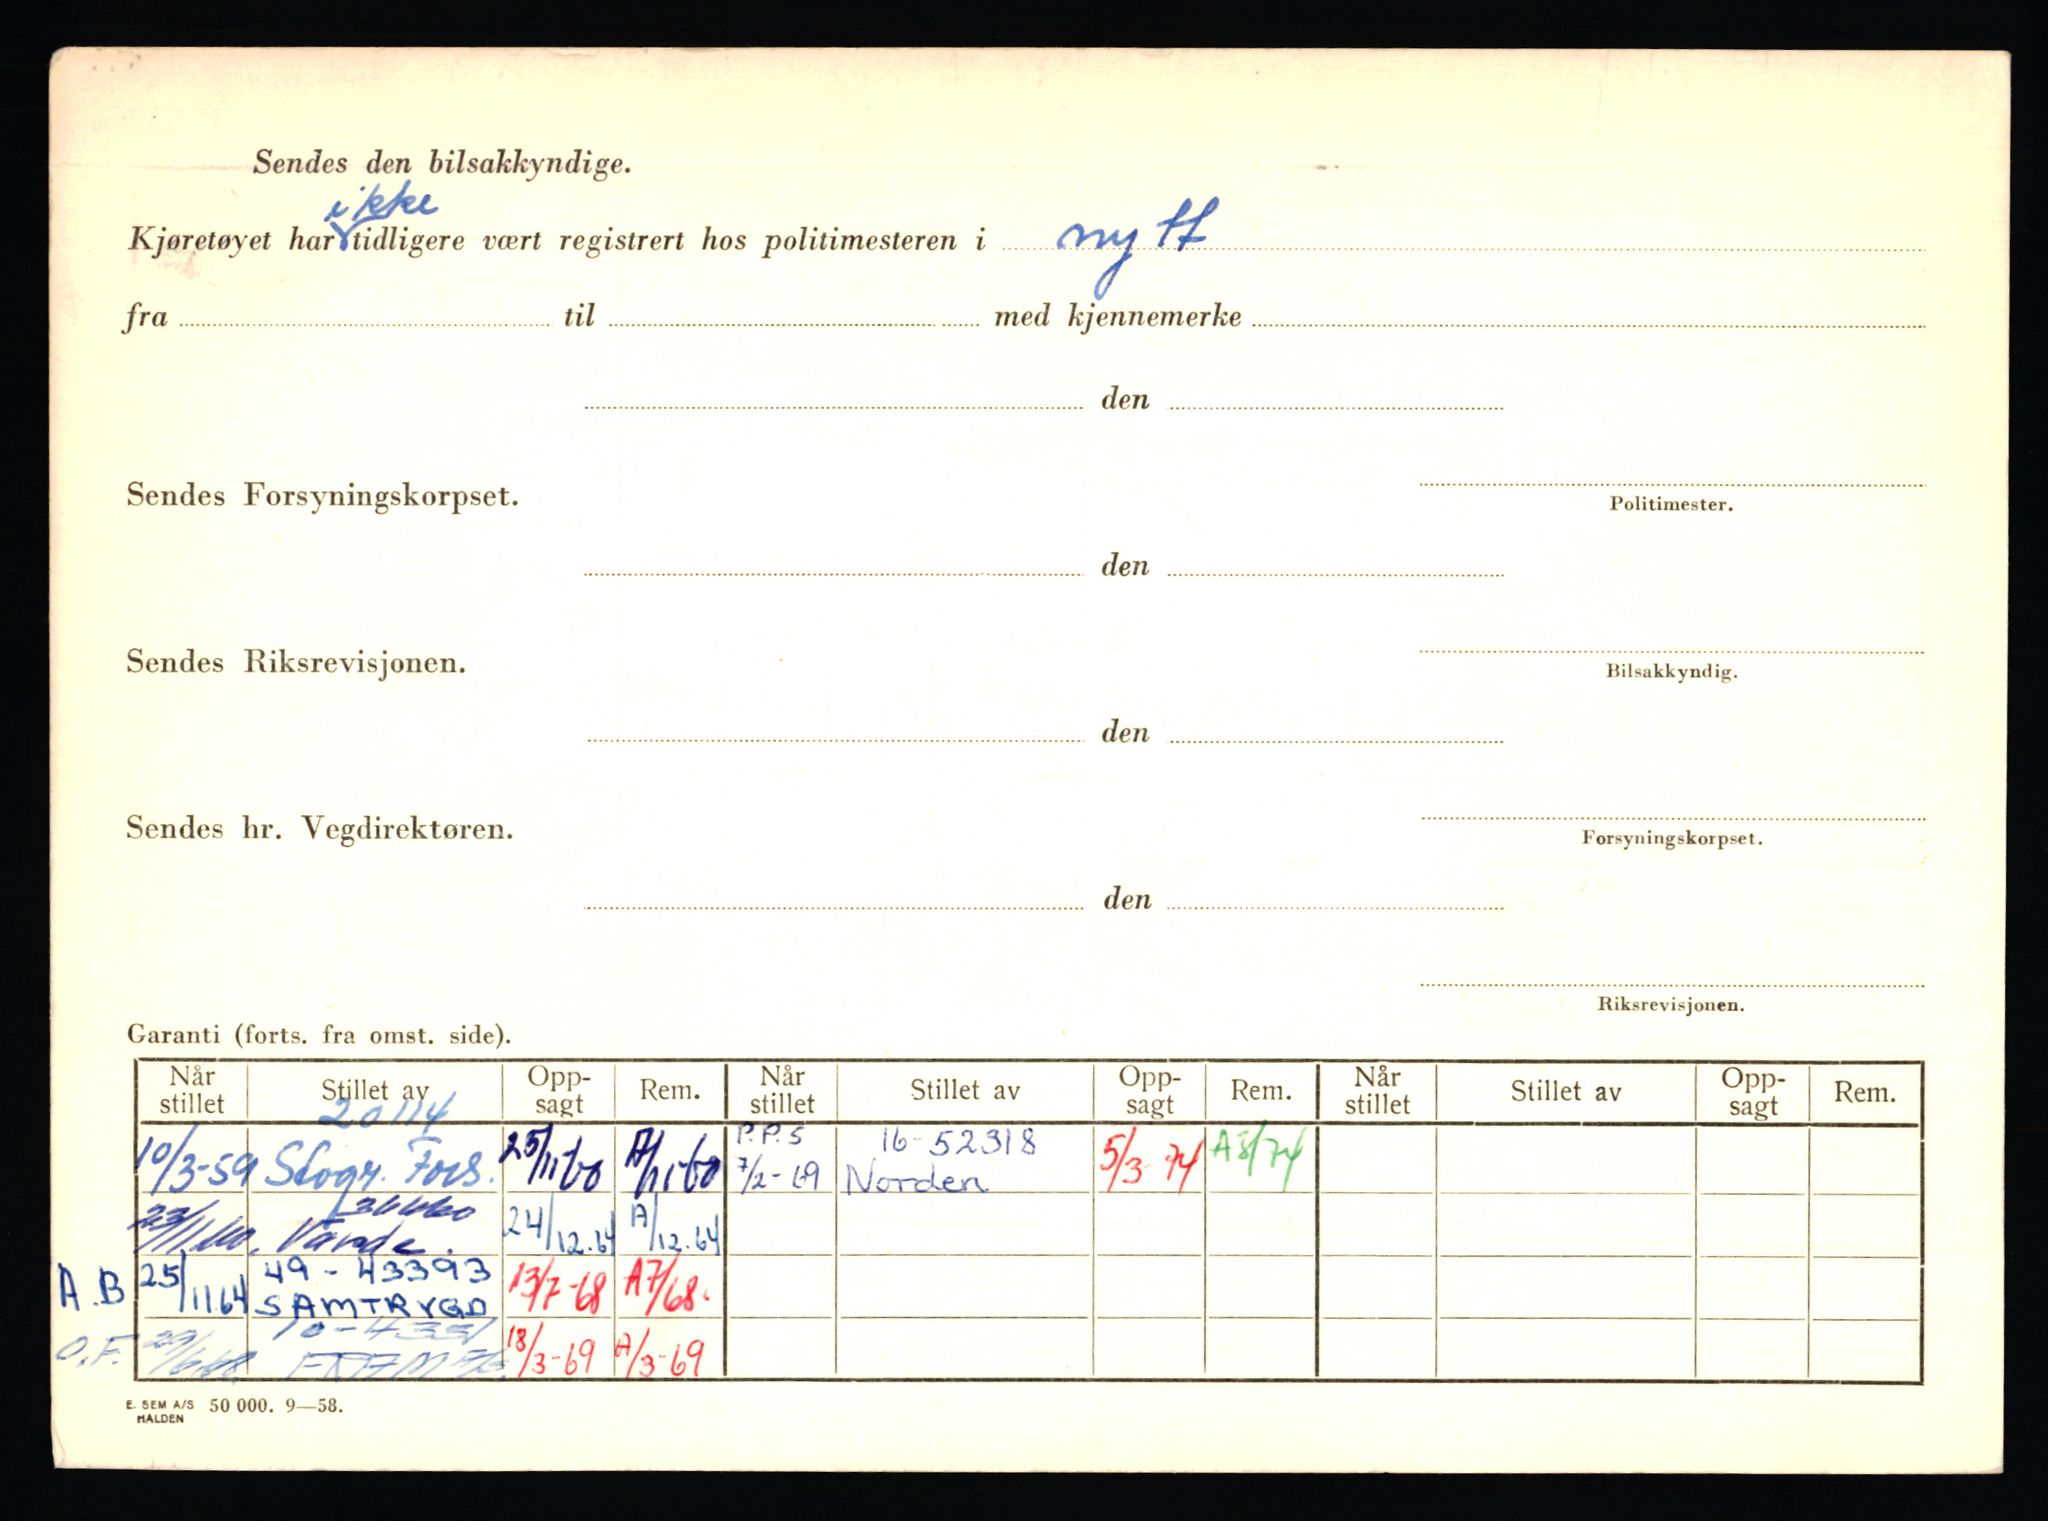 Sendes den bilsakkyndige.
ikke
Kjøretøyet har tidligere vært registrert hos politimesteren i nytt
fra til med kjennemerke
den
Sendes Forsyningskorpset.
Politimester.
den
Sendes Riksrevisjonen.
Bilsakkyndig.
den
Sendes hr. Vegdirektøren.
Forsyningskorpset.
den
Riksrevisjonen.
Garanti (forts. fra omst. side).
Når stillet Stillet av Opp-sagt Rem. Når stillet Stillet av Opp-sagt Rem. Når stillet Stillet av Opp-sagt Rem.
20114 P.P.S 16-52318
10/3-59 Skogr. Fors. 25/11-60 A/11-60 7/2-69 Norden 5/3-74 A3/74
36660
23/11.60. Varde. 24/12.64 A/12.64
A.B 25/11.64 49-43393 13/7-68 A7/68.
SAMTRYGD
O.F. 10-4331 18/3-69 A/3-69
E. SEM A/S HALDEN 50 000. 9—58.